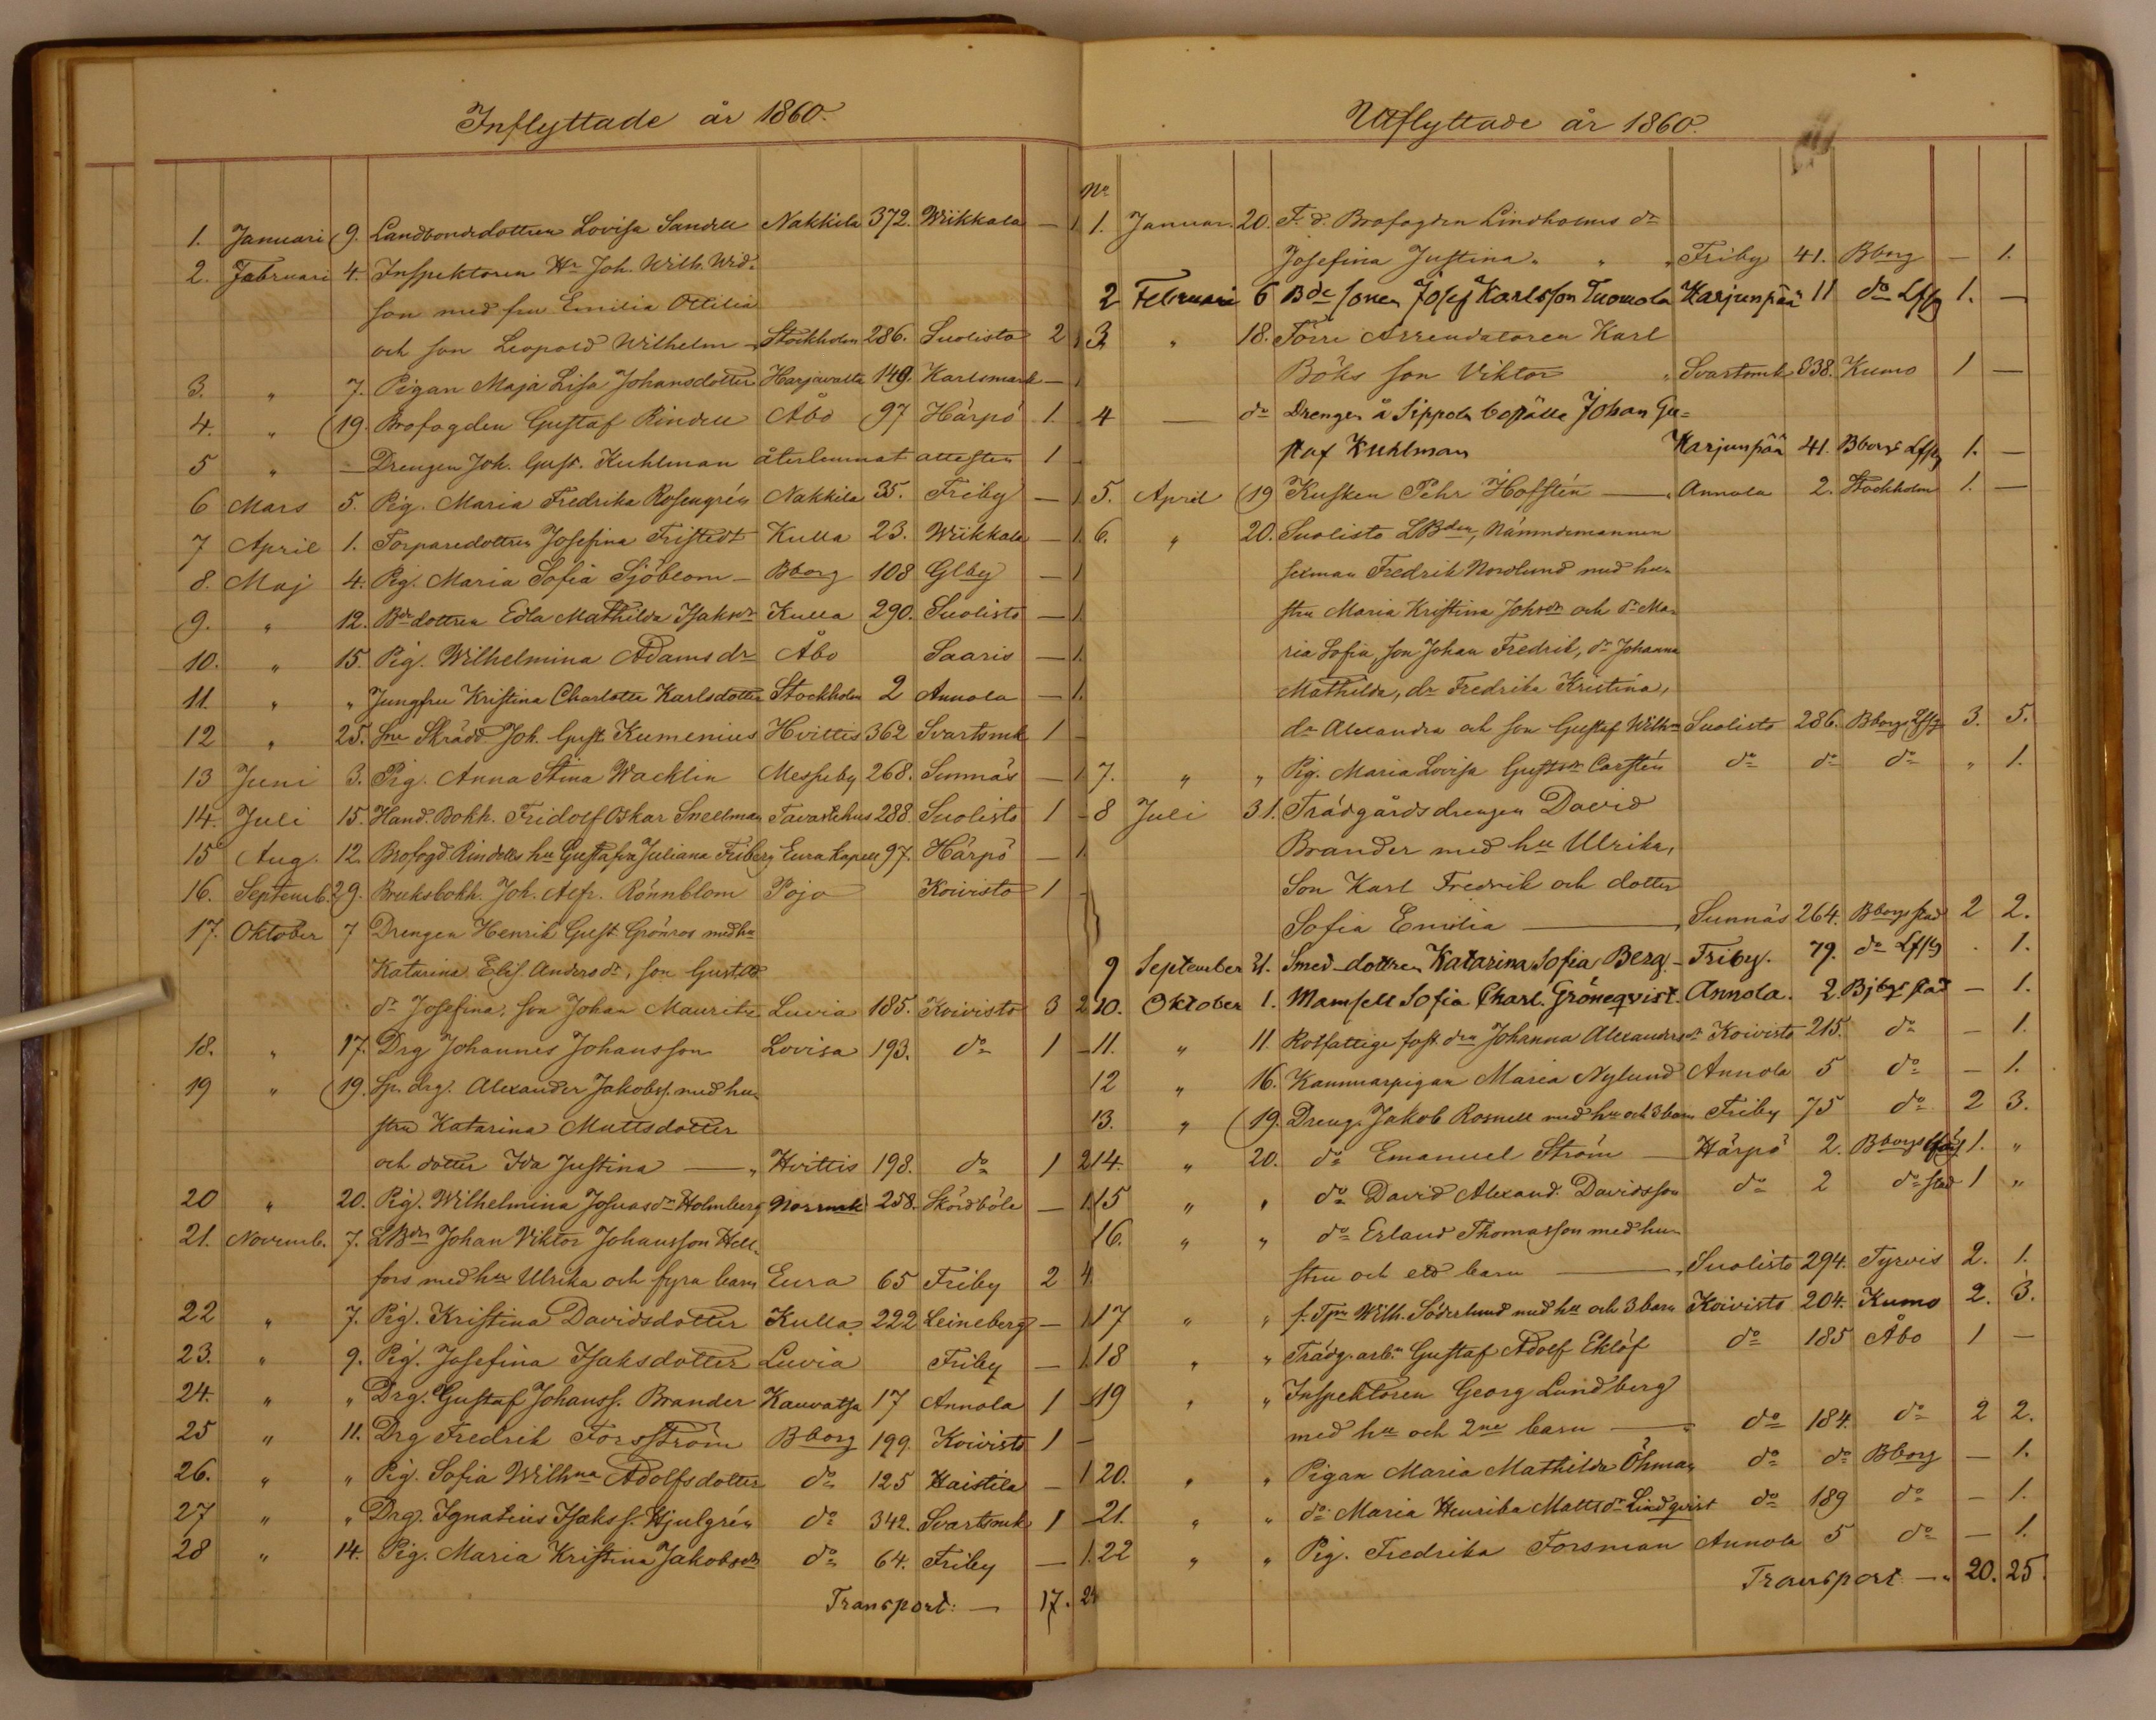 Inflyttade år 1860.
1. Januari 9. Landbondedottren Lovisa Sandell Nakkila 372. Wiikkala — 1
2. Februari 4. Inspektoren Hr Joh. Wilh. Wid-
son med fru Emilia Ottilia
och son Leopold Wilhelm — Stockholm 286. Suolisto 2 1
3. " 7. Pigan Maja Lisa Johansdotter Harjavalta 149. Karlsmark — 1
4. " 19. Brofogden Gustaf Rindell Åbo 97 Härpö 1. -
5 " — Drengen Joh. Gust. Kuhlman återlemnat attesten 1 -
6 Mars 5. Pig. Maria Fredrika Rosengrén Nakkila 35. Friby — 1
7 April 1. Torparedottren Josefina Fristedt Kulla 23. Wiikkala — 1.
8. Maj 4. Pig. Maria Sofia Sjöblom — Bborg 108 Glby — 1
9. " 12. Bdedottren Edla Mathilda Isaksdr Kulla 290. Suolisto — 1.
10. " 15. Pig. Wilhelmina Adamsdr Åbo Saaris — 1.
11. " " Jungfru Kristina Charlotta Karlsdotter Stockholm 2 Annola — 1.
12 " 25. Skrädd. Joh. Gust. Kumenius Hvittis 362 Svartsmk 1 -
13 Juni 3. Pig. Anna Stina Wacklin Messuby 268. Sunnäs — 1
14. Juli 15. Hand. Bokh. Fridolf Oskar Snellman Tavastehus 288. Suolisto 1 -
15 Aug. 12. Brofogd Rindells hu Gustafva Juliana Friberg Eura kapell 97. Härpö — 1.
16. Septemb. 29. Bruksbokh. Joh. Alfr. Rönnblom Pojo Koivisto 1 -
17. Oktober 7 Drengen Henrik Gust Grönros med hu
Katarina Elis. Andersdr, son Gustaf
dr Josefina, son Johan Mauritz Luvia 185. Koivisto 3 2
18. " 17. Drg Johannes Johansson Lovisa 193. do 1 -
19 " 19. Sp. drg. Alexander Jakobss. med hu-
stru Katarina Mattsdotter
och dotter Ida Justina — " Hvittis 198. do 1 2
20 " 20. Pig. Wilhelmina Josuasdr Holmberg Norrmk 258. Skördböle — 1.
21. Novemb. 7. LBdn Johan Viktor Johansson Hell-
fors med hu Ulrika och fyra barn Eura 65 Friby 2 4
22 " 7. Pig. Kristina Davidsdotter Kulla 222 Leineberg — 1
23. " 9. Pig. Josefina Isaksdotter Luvia Friby — 1
24. " " Drg. Gustaf Johanss. Brander Kauvatsa 17 Annola 1 -
25 " 11. Drg Fredrik Forsström Bborg 199. Koivisto 1 -
26. " " Pig. Sofia Wilhna Adolfsdotter do 125 Haistila — 1
27 " " Drg. Ignatius Isakss. Hjulgrén do 342. Svartsmk 1 -
28 " 14. Pig. Maria Kristina Jakobsdr do 64. Friby — 1.
Transport: — 17. 24
Utflyttade år 1860.
No
1. Januar. 20. F. d. Brofogden Lindholms dr
Josefina Justina " " " Friby 41. Bborg — 1.
2 Februari 6 Bde sonen Josef Karlsson Tuomola Karjunpää 11 do Lfsg 1. —
3 " 18. Förre Arrendatoren Karl
Böks son Viktor " Svartsmk 338. Kumo 1 —
4 — do Drengen å Sippola boställe Johan Gu-
staf Kuhlman Karjunpää 41. Bborgs Lfsg 1. —
5. April 19 Kusken Pehr Hofstén — Annola 2. Stockholm 1. —
6. " 20. Suolisto LBden, Nämndemannen
sexman Fredrik Nordlund med hu-
stru Maria Kristina Johsdr och dr Ma-
ria Sofia, son Johan Fredrik, dr Johanna
Mathilda, dr Fredrika Kristina,
dr Alexandra och son Gustaf Wilhm Suolisto 286. Bborgs Lfsg 3. 5.
7. " " Pig. Maria Lovisa Gustsdr Carstén do do do " 1.
8 Juli 31. Trädgårdsdrengen David
Brander med hu Ulrika,
Son Karl Fredrik och dotter
Sofia Emilia — Sunnäs 264. Bborgs stad 2 2.
9 September 21. Smed-dottren Katarina Sofia Berg. — Friby. 79. do Lfsg . 1.
10. Oktober 1. Mamsell Sofia Charl. Gröneqvist. Annola. 2 Bjbgs stad — 1.
11. " 11. Rotfattige fost. drn Johanna Alexandersdr Koivisto 215. do — 1.
12 " 16. Kammarpigan Maria Nylund Annola 5 do — 1.
13. " 19. Dreng. Jakob Rosnell med hu och 3 barn Friby 75 do 2 3.
14. " 20. do Emanuel Ström — Härpö 2. Bborgs lfsg 1. "
15 " " do David Alexand. Davidsson do 2 do stad 1 "
16. " " do Erland Thomasson med hu-
stru och ett barn — " Suolisto 294. Tyrvis 2. 1.
17 " " f. Tpn Wilh. Söderlund med hu och 3 barn Koivisto 204. Kumo 2. 3.
18 " " Trädg. arb. Gustaf Adolf Eklöf do 185 Åbo 1 —
19 " " Inspektoren Georg Lundberg
med hu och 2ne barn — " do 184. do 2 2.
20. " " Pigan Maria Mathilda Öhman do do Bborg — 1.
21. " " do Maria Henrika Mattsdr Lindqvist do 189 do — 1.
22 " " Pig. Fredrika Forsman Annola 5 do — 1.
Transport — " 20. 25.